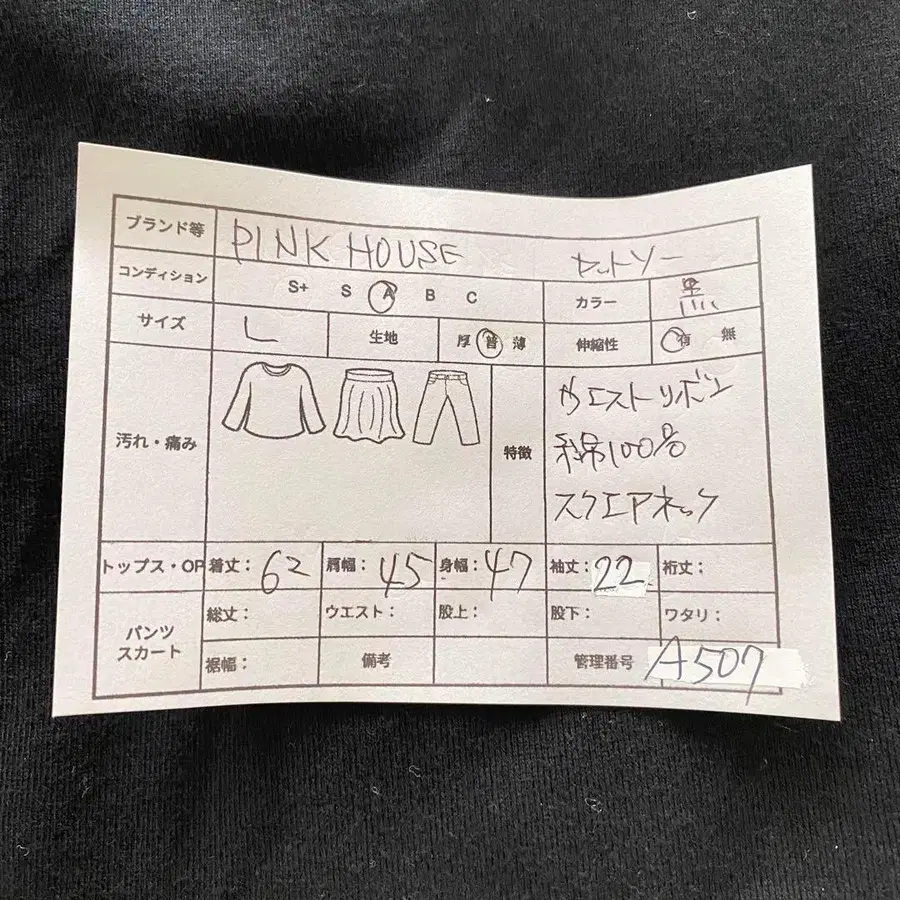 ブランド等 PINK HOUSE カットソー
コンディション S+ S A B C カラー 黒
サイズ L 生地 厚 普 薄 伸縮性 有 無
汚れ・痛み 特徴
ウエストリボン
綿100%
スクエアネック
トップス・OP 着丈： 62 肩幅： 45 身幅： 47 袖丈： 22 裄丈：
パンツ スカート
総丈： ウエスト： 股上： 股下： ワタリ：
裾幅： 備考 管理番号 A507